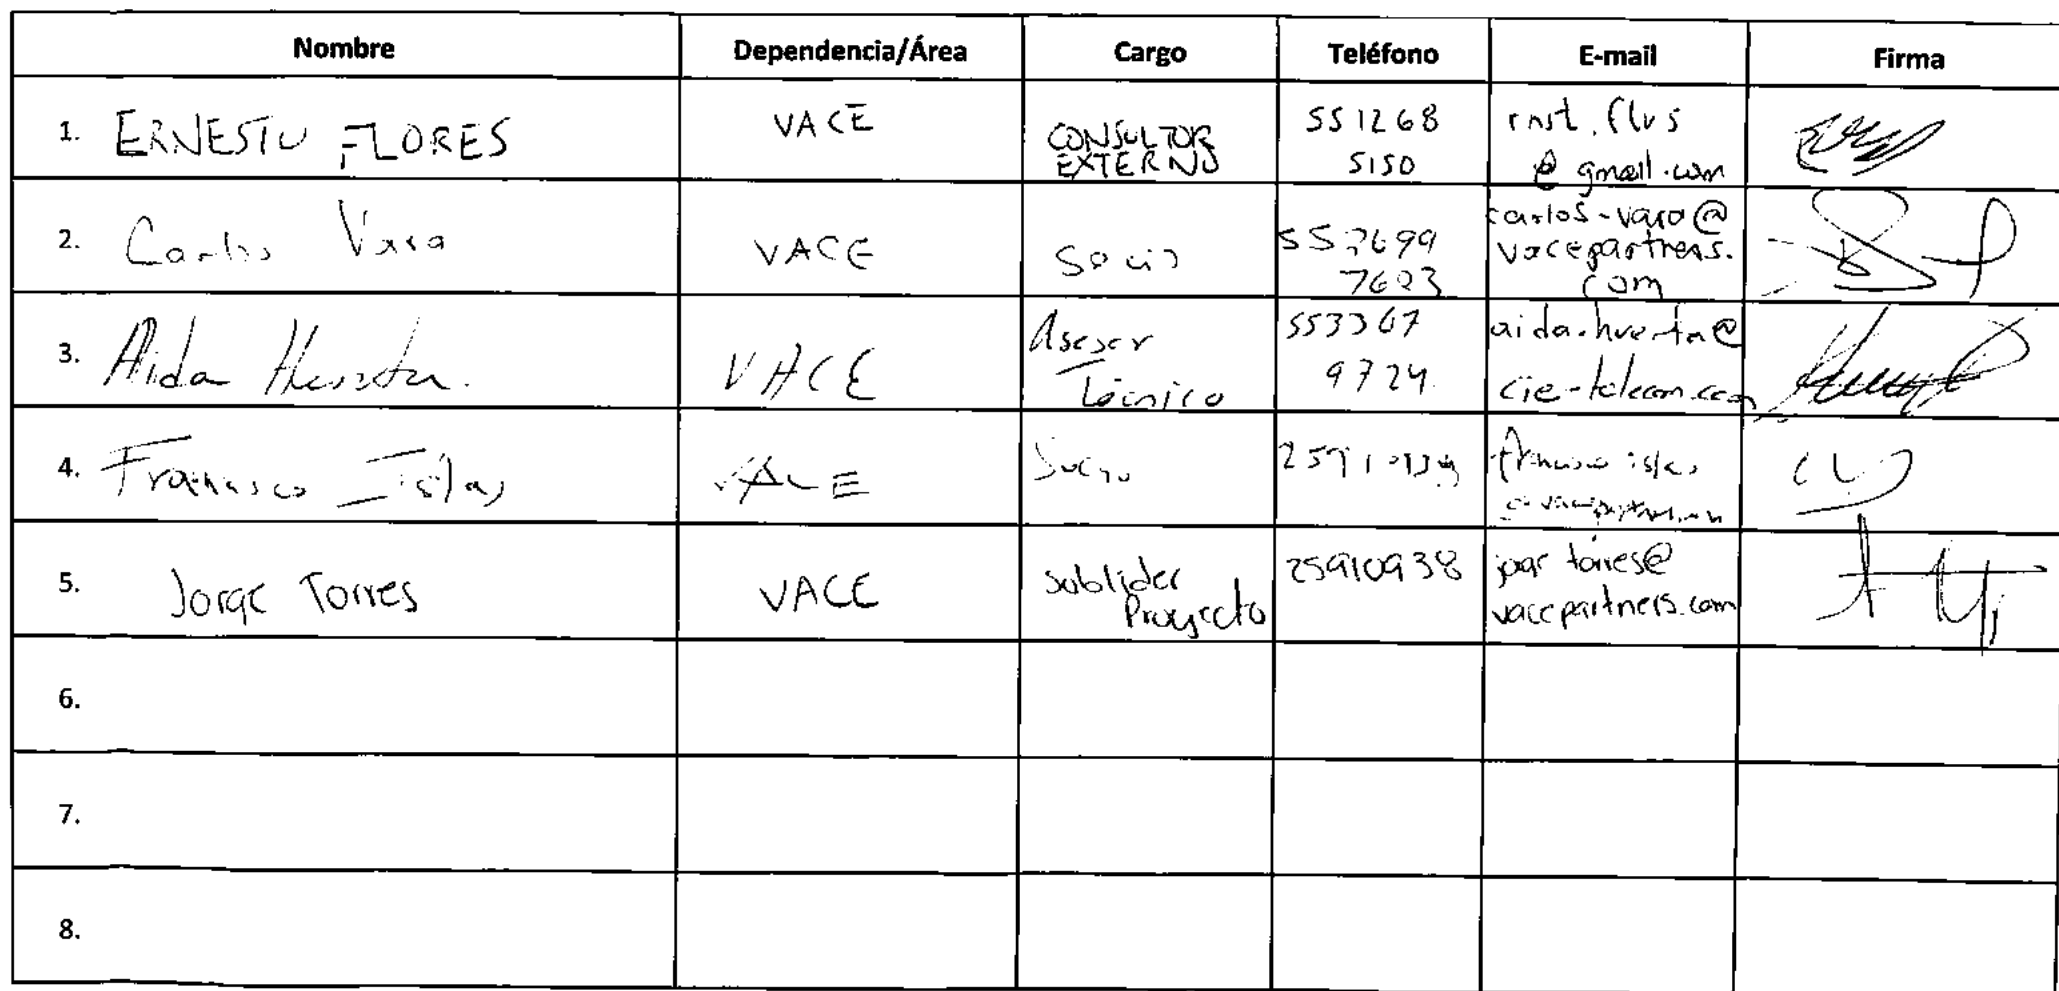 Nombre Dependencia/Área Cargo Teléfono E-mail Firma
1. ERNESTO FLORES VACE CONSULTOR EXTERNO 551268 5150 rnst.flrs @gmail.com
2. Carlos Vara VACE Socio 7623 carlos-vara@ vacepartners. com
3. Aida Huerta. VACE Asesor Técnico 553367 9724 aida.huerta@ cie-telecom.com
4. Francisco Islas VACE Socio
5. Jorge Torres VACE Sublider Proyecto 25910938 jorge torres@ vacepartners.com
6.
7.
8.